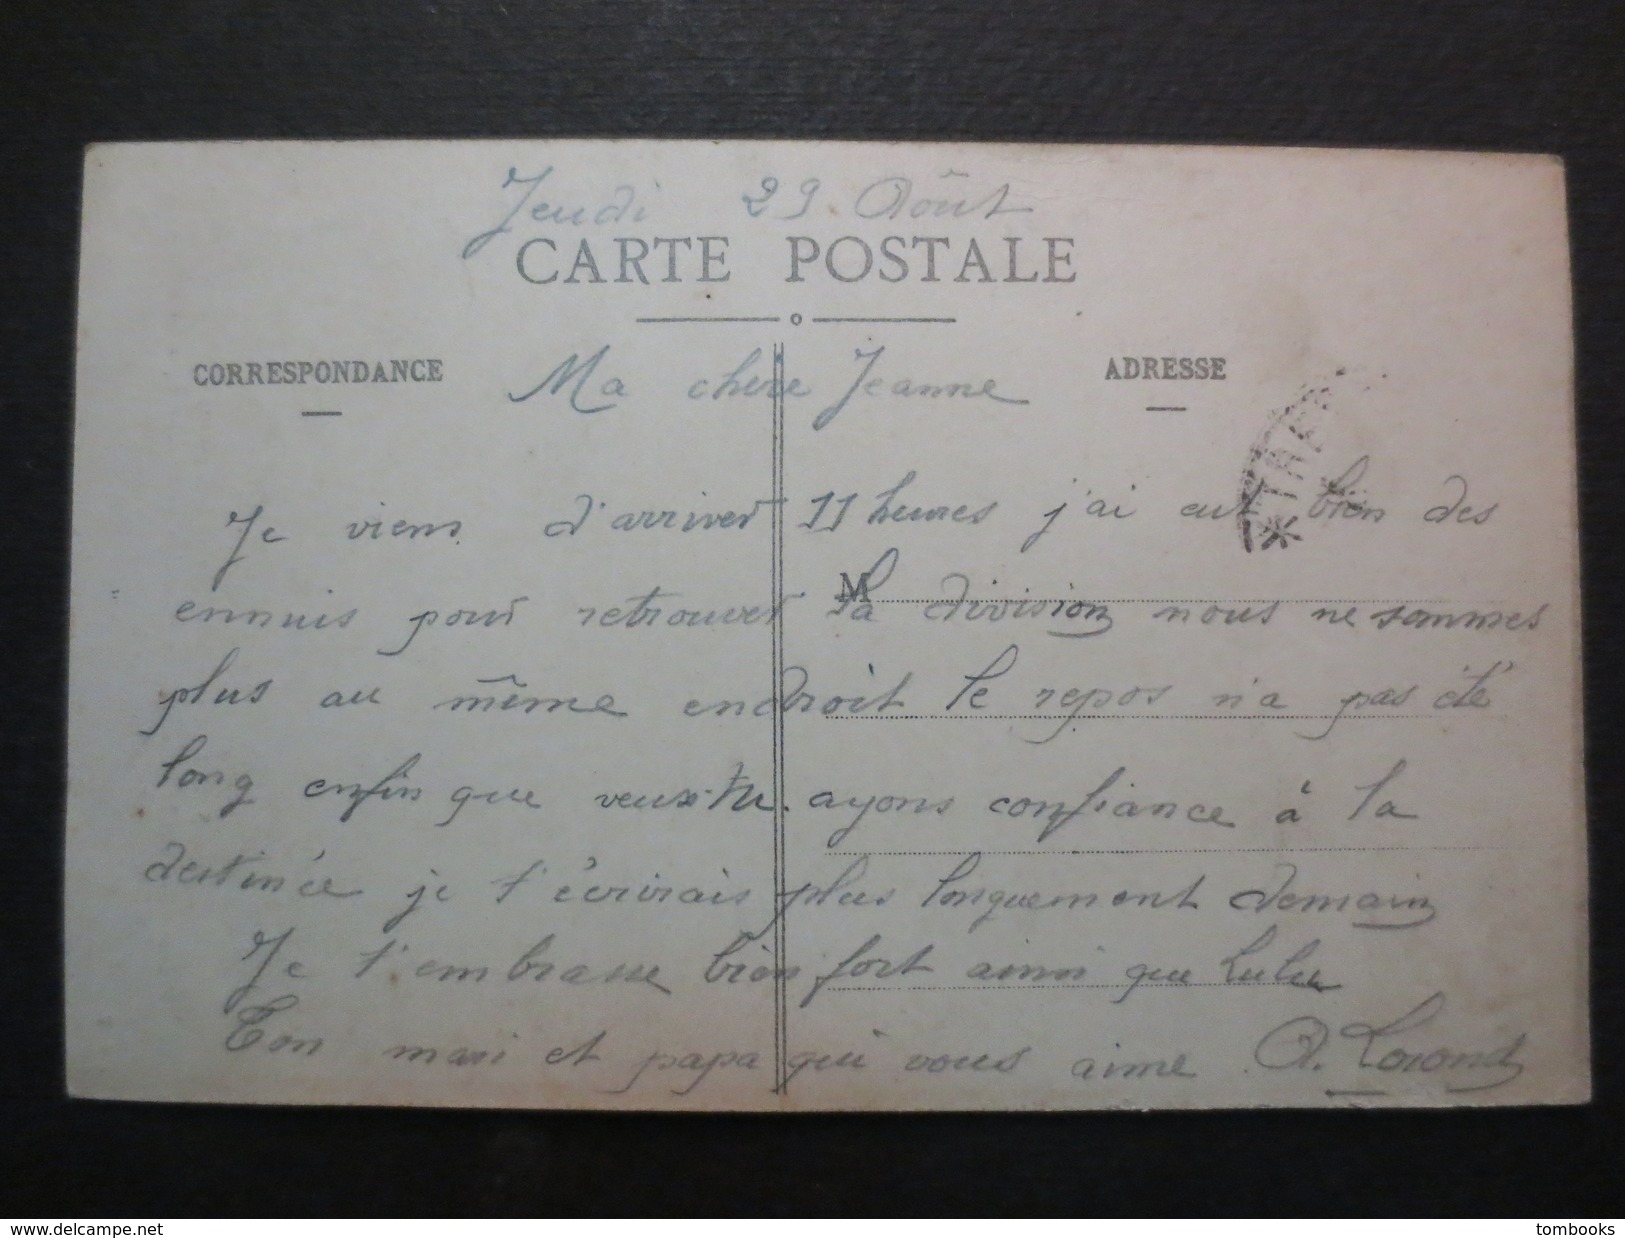 Jeudi 29 Août
CARTE POSTALE
CORRESPONDANCE
ADRESSE
Ma chere Jeanne
Je viens d'arriver 11 heures j'ai eut bien des
M
ennuis pour retrouver la division nous ne sommes
plus au même endroit le repos n'a pas été
long enfin que veux-tu ayons confiance à la
destinée je t'écrirais plus longuement demain
Je t'embrasse bien fort ainsi que Lulu
Ton mari et papa qui vous aime
delcampe.net
tombooks